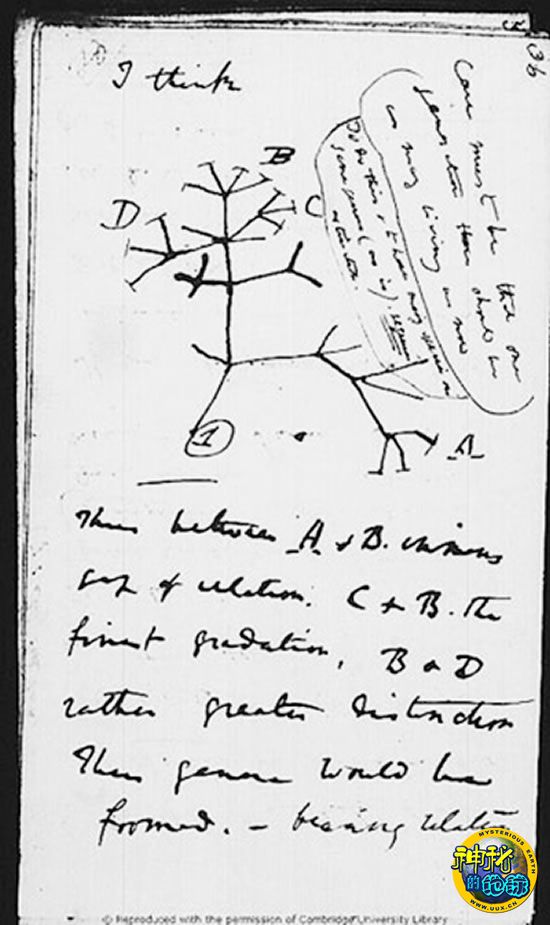 36
I think
Case must be that one
generation then should be
as many living as now
To do this & to have many species in
same genus (as is). requires
extinction.
B
D
C
A
1
Thus between A & B. immens
gap of relation. C & B. the
finest gradation, B & D
rather greater distinction
Thus genera would be
formed. — bearing relation
神秘的地球
MYSTERIOUS EARTH
WWW.UUX.CN
© Reproduced with the permission of Cambridge University Library